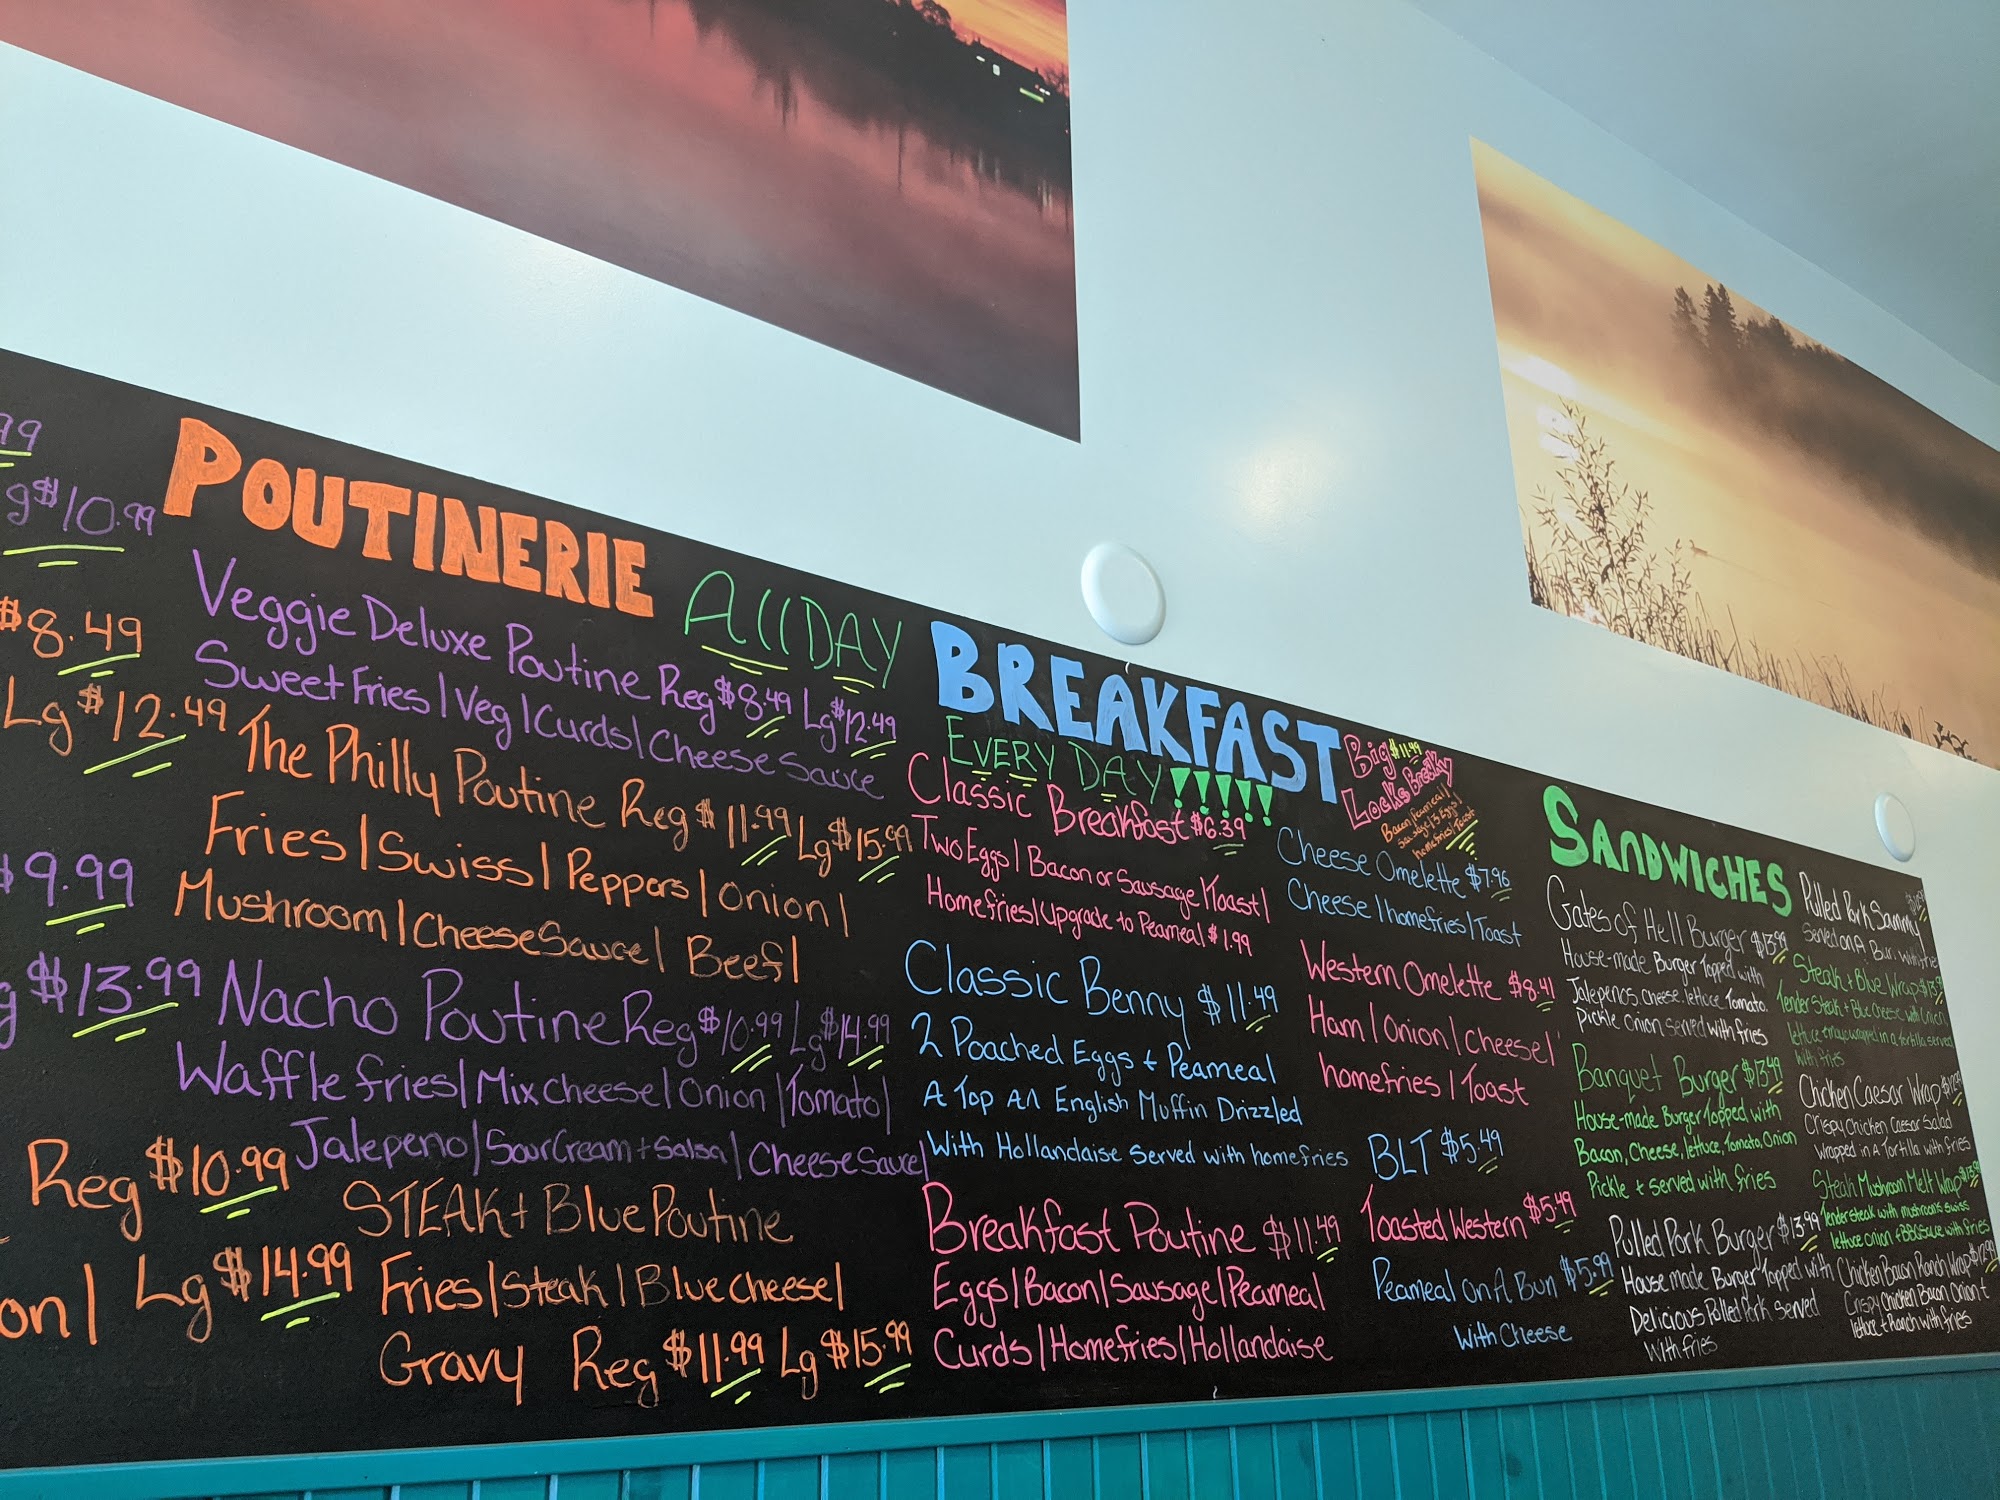 99
g $10.99
$8.49
Lg $12.49
$9.99
g $13.99
Reg $10.99
on | Lg $14.99
POUTINERIE
Veggie Deluxe Poutine Reg $8.49 Lg $12.49
Sweet Fries | Veg | Curds | Cheese Sauce
The Philly Poutine Reg $11.99 Lg $15.99
Fries | Swiss | Peppers | Onion |
Mushroom | Cheese Sauce | Beef |
Nacho Poutine Reg $10.99 Lg $14.99
Waffle fries | Mix cheese | Onion | Tomato |
Jalepeno | Sour Cream + Salsa | Cheese Sauce |
STEAK + Blue Poutine
Fries | Steak | Blue cheese |
Gravy Reg $11.99 Lg $15.99
All DAY
BREAKFAST
EVERY DAY !!!!!
Classic Breakfast $6.39
Two Eggs | Bacon or Sausage | Toast |
Homefries | Upgrade to Peameal $1.99
Classic Benny $11.49
2 Poached Eggs + Peameal
A Top An English Muffin Drizzled
With Hollandaise Served with homefries
Breakfast Poutine $11.49
Eggs | Bacon | Sausage | Peameal
Curds | Homefries | Hollandaise
Big $11.99
Locks Breaky
Bacon | Peameal |
Sausage | 3 Eggs |
homefries | Toast
Cheese Omelette $7.96
Cheese | homefries | Toast
Western Omelette $8.41
Ham | Onion | Cheese |
homefries | Toast
BLT $5.49
Toasted Western $5.49
Peameal On A Bun $5.99
With Cheese
SANDWICHES
Gates of Hell Burger $13.99
House-made Burger Topped with
Jalepenos, cheese, lettuce, Tomato.
Pickle Onion served with fries
Banquet Burger $13.49
House-made Burger Topped with
Bacon, Cheese, lettuce, Tomato, Onion
Pickle + served with fries
Pulled Pork Burger $13.99
House made Burger Topped with
Delicious Pulled Pork Served
With fries
Pulled Pork Sammy
Served on A Bun with fries
Steak + Blue Wrap
Tender Steak + Blue cheese with Onion
lettuce + mayo wrapped in a tortilla served
with fries
Chicken Caesar Wrap
Crispy Chicken Caesar Salad
Wrapped in A Tortilla with fries
Steak Mushroom Melt Wrap
Tender steak with mushrooms swiss
lettuce onion + BBQ sauce with fries
Chicken Bacon Ranch Wrap
Crispy Chicken Bacon Onion +
lettuce + Ranch with fries